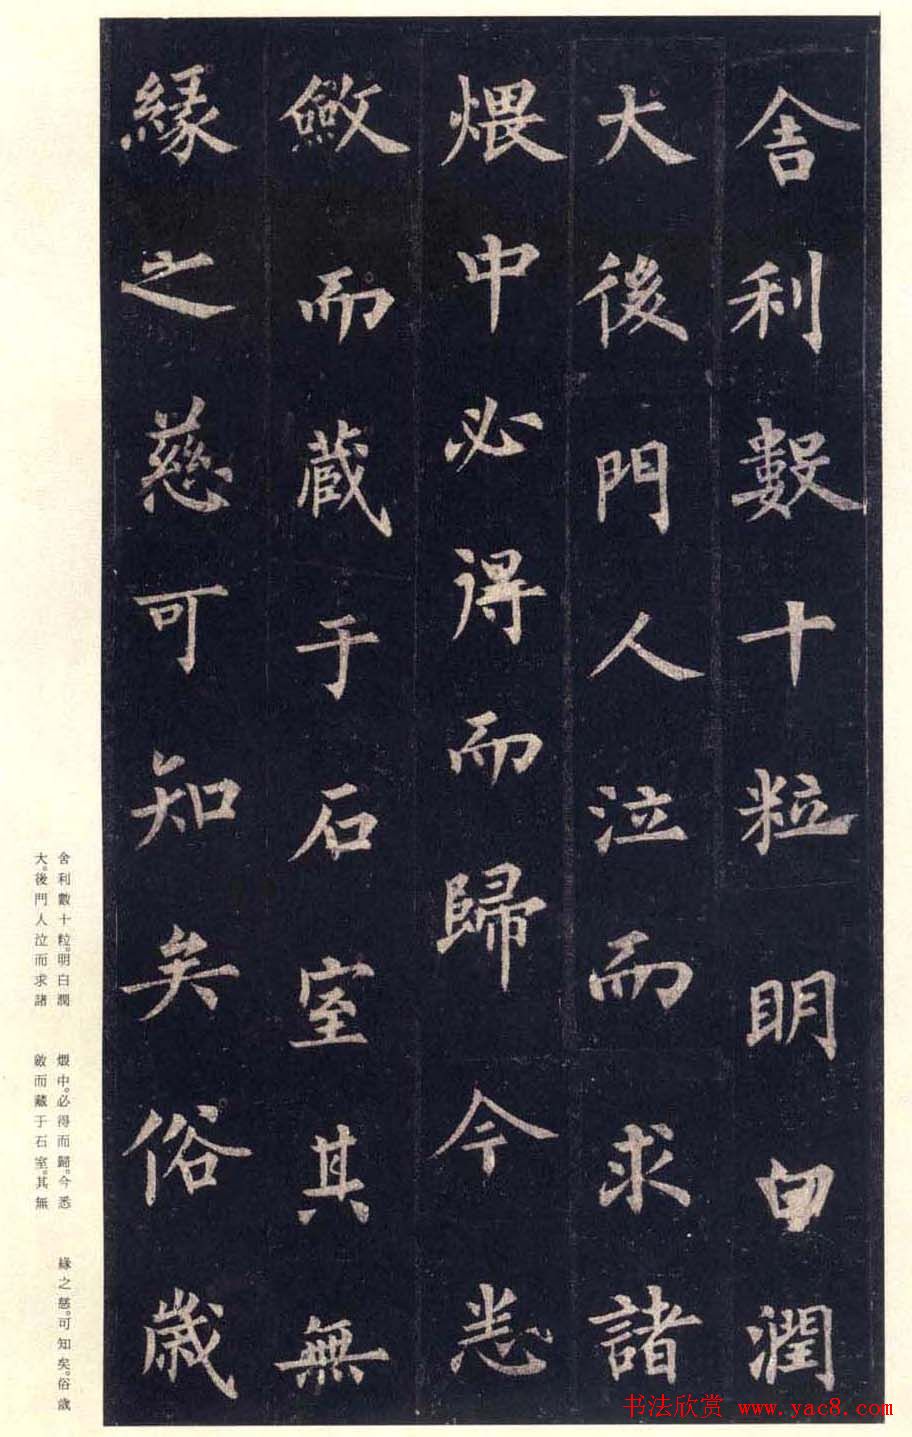 舍利數十粒明白潤
大後門人泣而求諸
煨中必得而歸今悉
斂而藏于石室其無
緣之慈可知矣俗歲
舍利數十粒。明白潤
大。後門人泣而求諸
煨中。必得而歸。今悉
斂而藏于石室。其無
緣之慈。可知矣。俗歲
书法欣赏 www.yac8.com